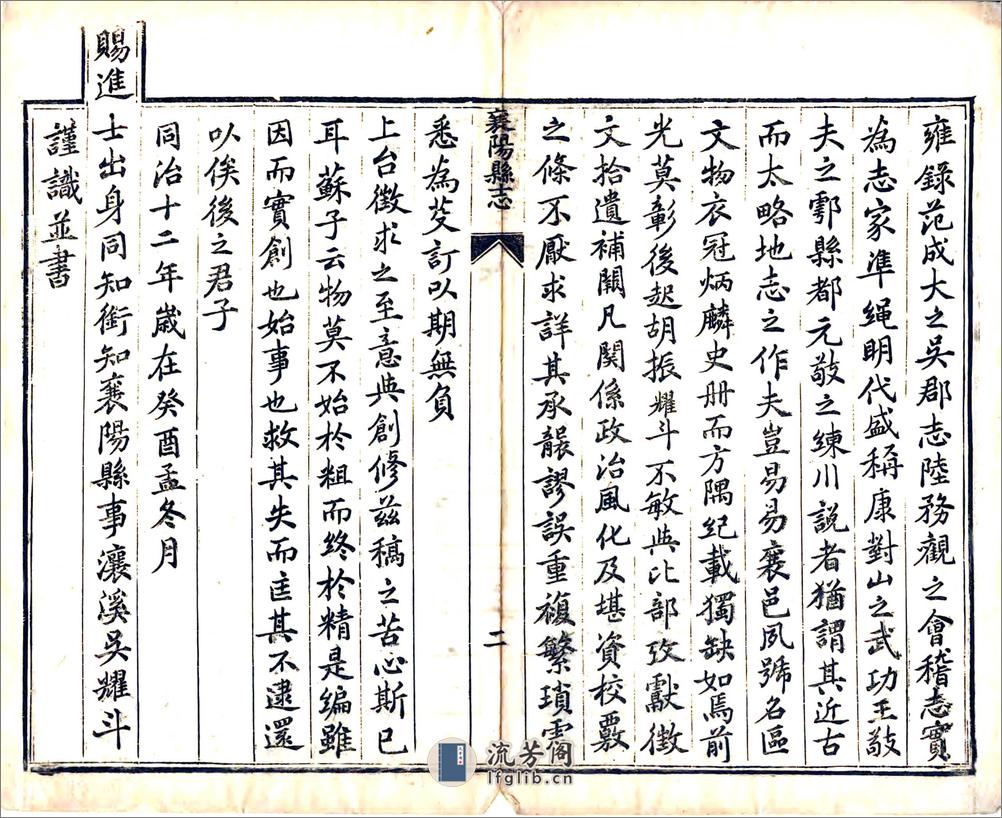 雍錄范成大之吳郡志陸務觀之會稽志實
為志家準繩明代盛稱康對山之武功王敬
夫之鄠縣都元敬之練川說者猶謂其近古
而太略地志之作夫豈易易襄邑夙號名區
文物衣冠炳麟史册而方隅紀載獨缺如焉前
光莫彰後起胡振耀斗不敏與比部攷獻徵
文拾遺補闕凡関係政治風化及堪資校覈
之條不厭求詳其承襲謬誤重複繁瑣
襄陽縣志
二
悉為芟訂以期無負
上台徵求之至意與創修兹稿之苦心斯已
耳蘇子云物莫不始於粗而終於精是编雖
因而實創也始事也救其失而匡其不逮還
以俟後之君子
同治十二年歲在癸酉孟冬月
賜進士出身同知銜知襄陽縣事瀼溪吳耀斗
謹識並書
流芳阁
lfglib.cn